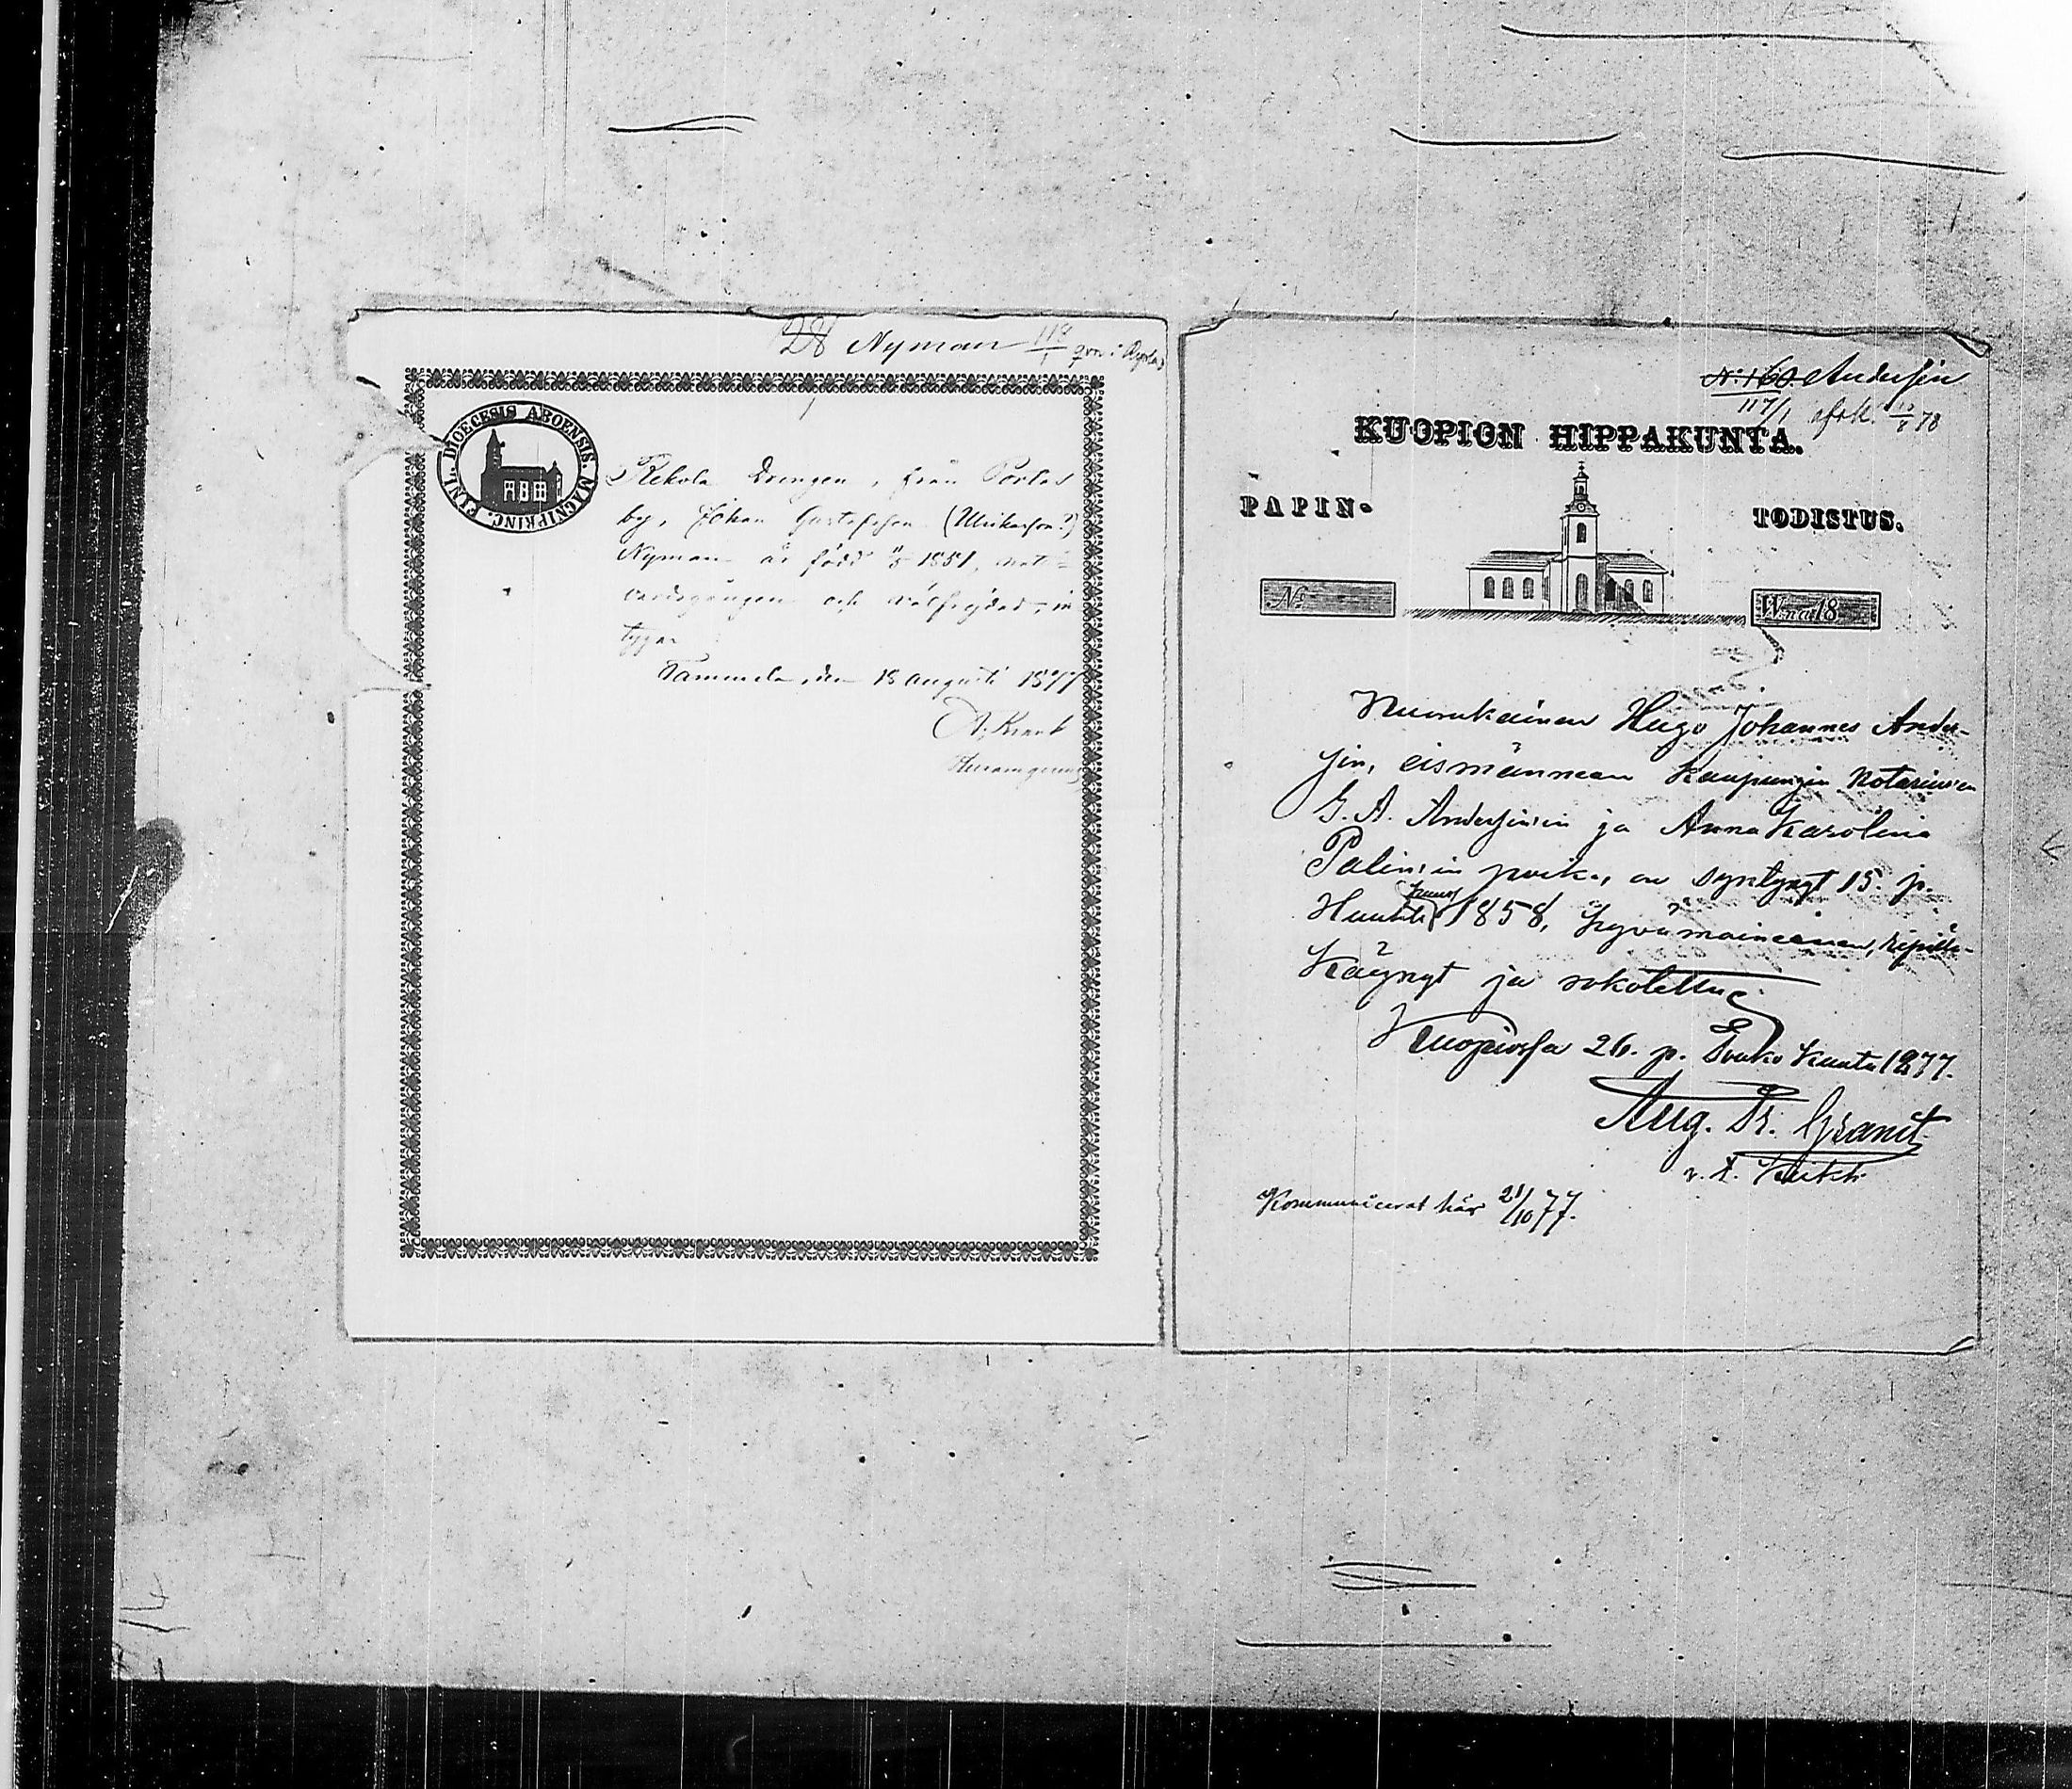 28 Nyman
DIOECESIS ABOENSIS. MAGNI PRINC. FINL.
Rekola drengen, från Portas
by, Johan Gustafsson (Ulriksson?)
Nyman är född 1851, natt-
vardsgången och välfrejdad, in-
tygar
Tammela den 18 augusti 1877
N:o 160 Andersin
117/1 78
KUOPION HIPPAKUNTA.
PAPIN- TODISTUS.
N:o Wna 18
Nuorukainen Hugo Johannes Ander-
sin, eismännean Kaupungin Notariuse'n
G. A. Andersin'in ja Anna Karolina
Palin'in poika, on syntynyt 15. p.
Huhti 1858, hyvämaineinen, ripillä-
käynyt ja rokotettu
Kuopiossa 26. p. Touko kuuta 1877.
Aug. Fr. Granit
Kommunicerat här 21/10 77.